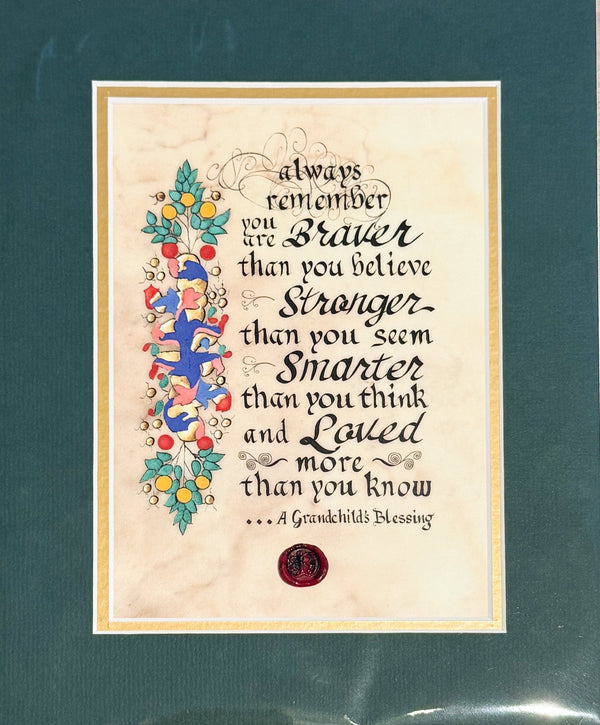 always
remember
you
are Braver
than you believe
Stronger
than you seem
Smarter
than you think
and Loved
more
than you know
... A Grandchild's Blessing